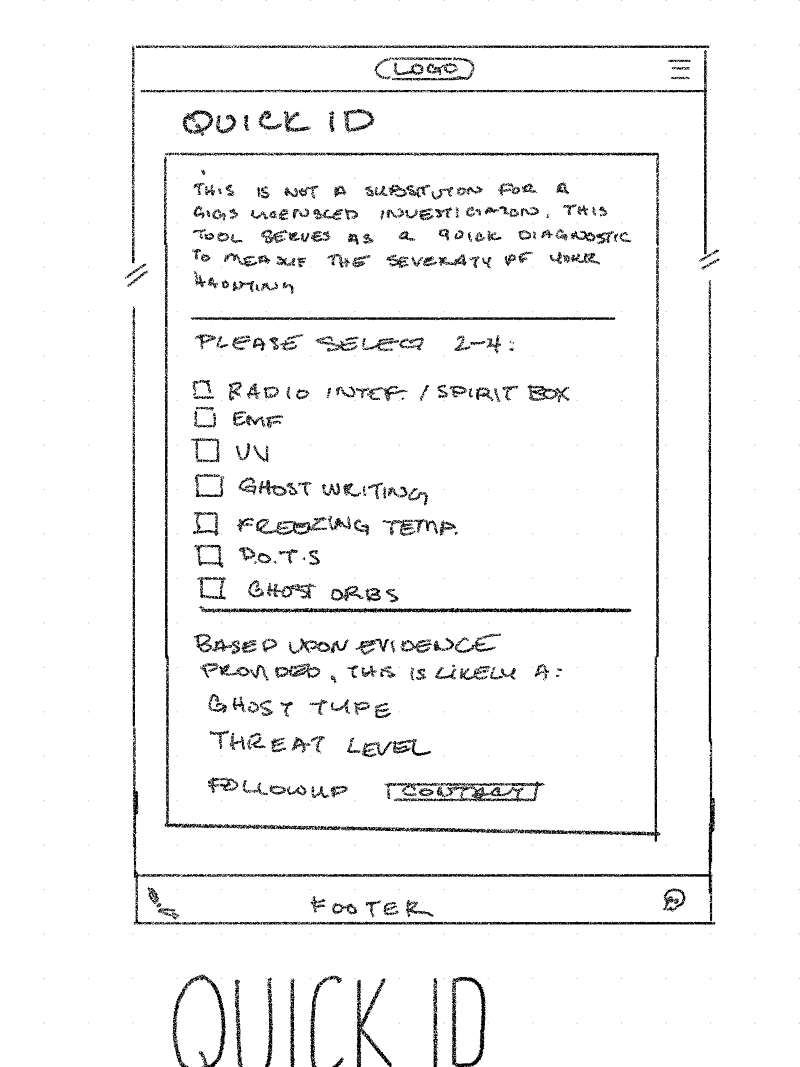 LOGO
QUICK ID
THIS IS NOT A SUBSITUTON FOR A
GIGS LICENSCED INVESTIGATION. THIS
TOOL SERVES AS A QUICK DIAGNOSTIC
TO MEASURE THE SEVERATY OF YOUR
HAUNTING
PLEASE SELECT 2-4:
RADIO INTEF. / SPIRIT BOX
EMF
UV
GHOST WRITING
FREEZING TEMP.
D.O.T.S
GHOST ORBS
BASED UPON EVIDENCE
PROVIDED, THIS IS LIKELY A:
GHOST TYPE
THREAT LEVEL
FOLLOWUP CONTACT
FOOTER
QUICK ID